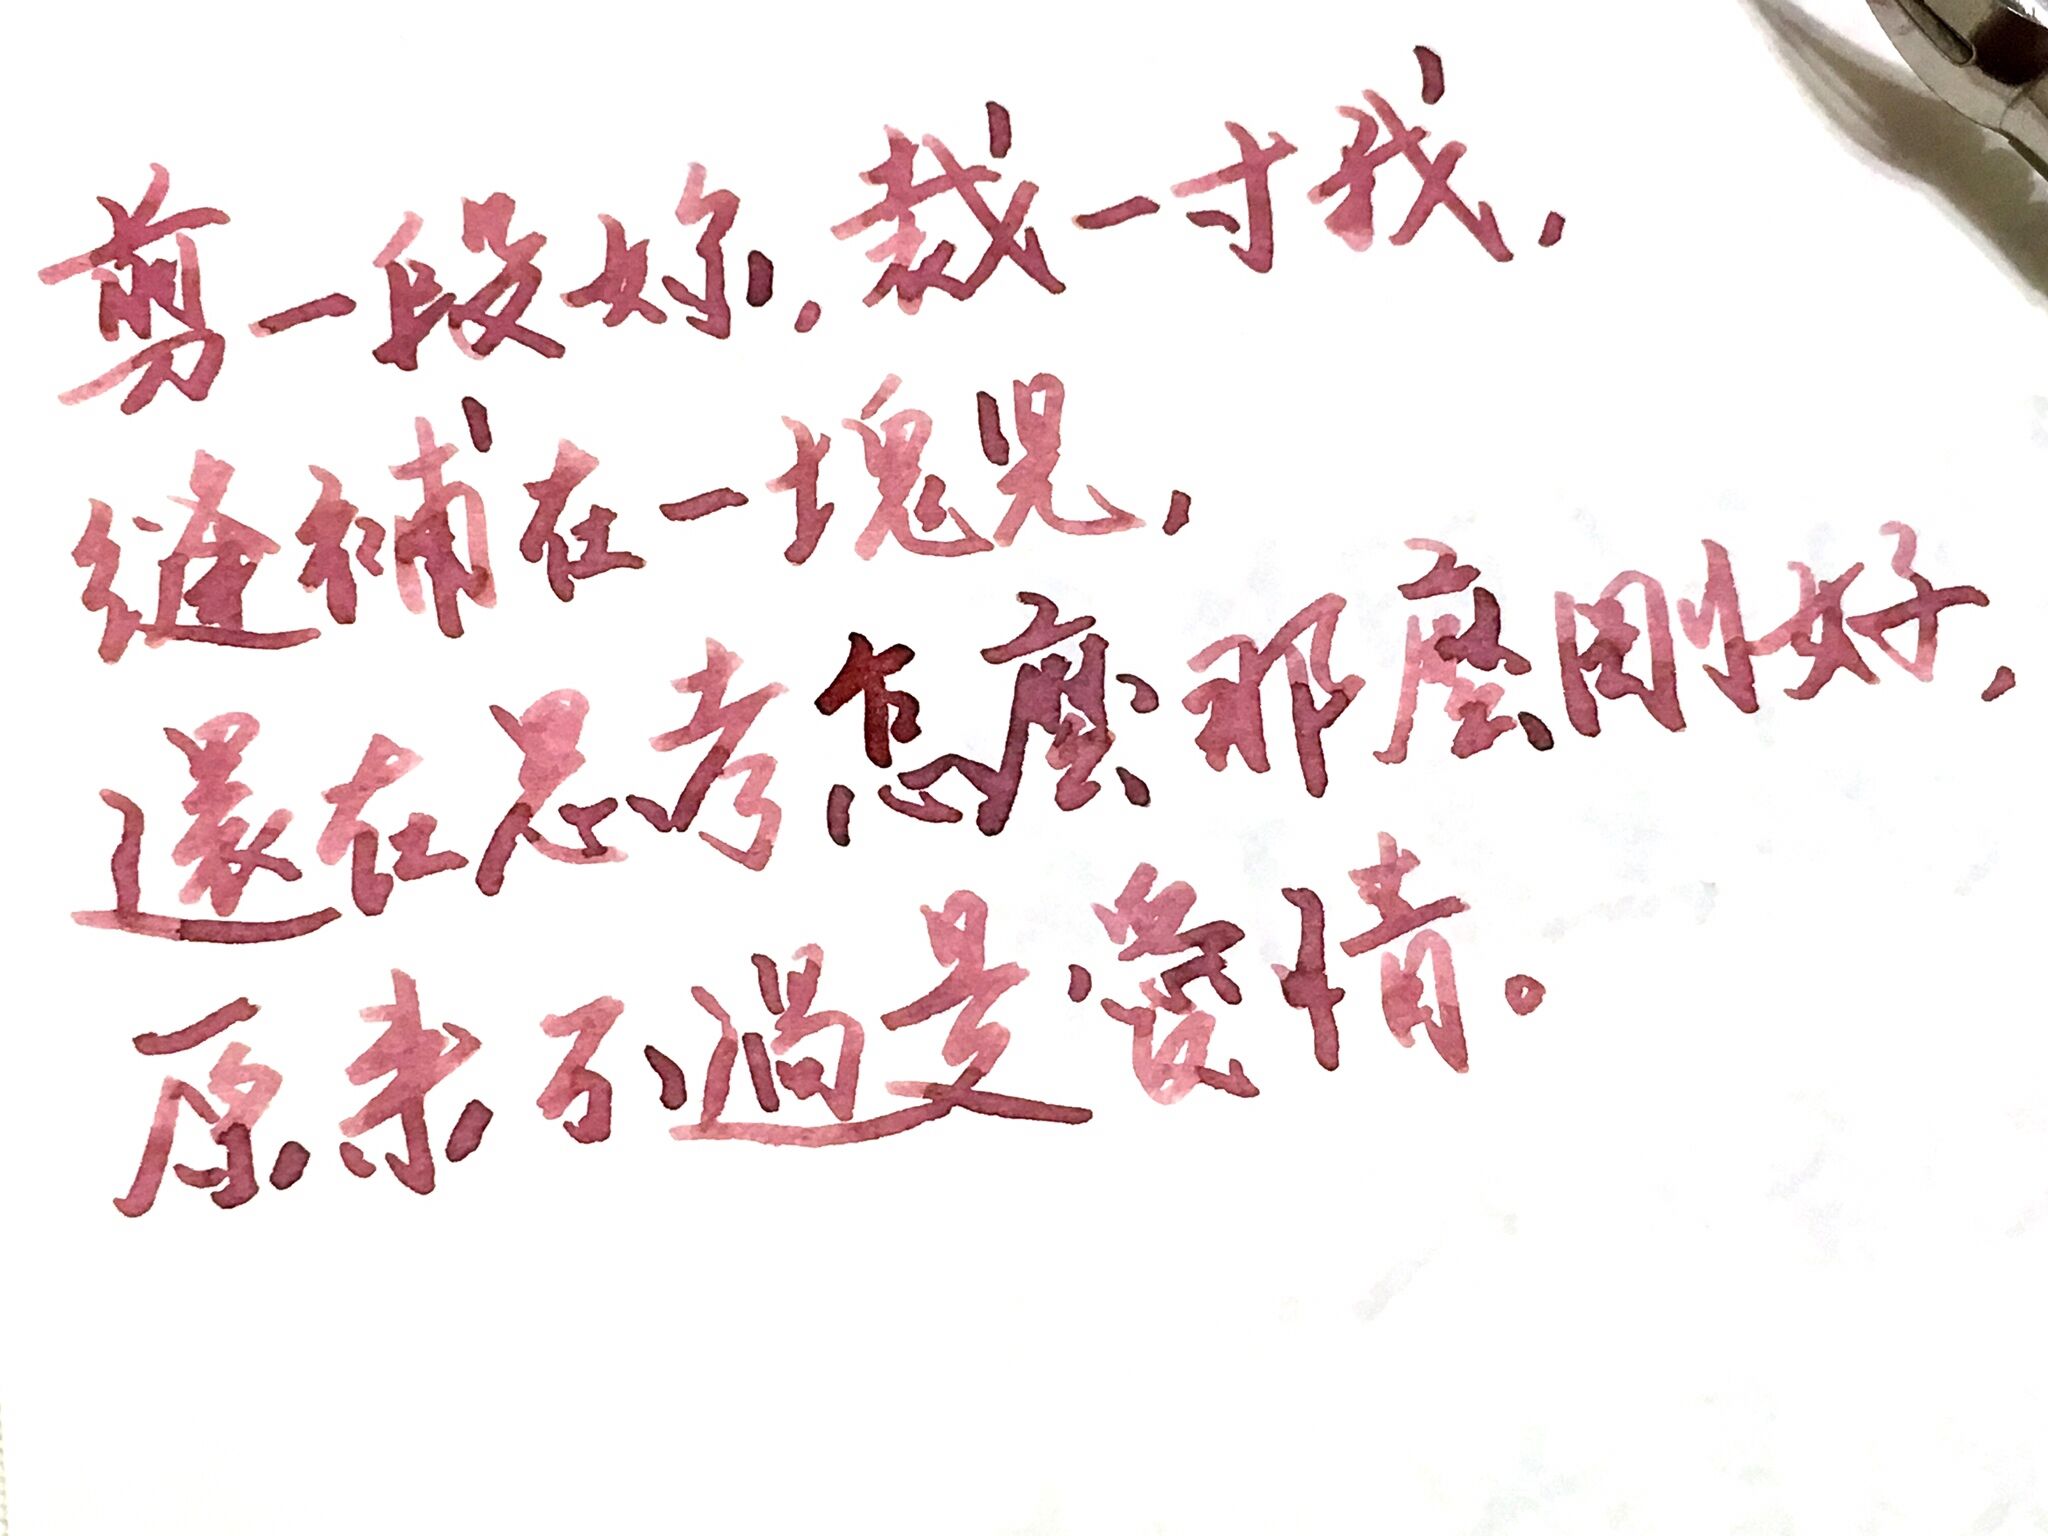 剪一段妳，裁一寸我，
縫補在一塊兒，
還在思考怎麼那麼剛好，
原來不過是愛情。